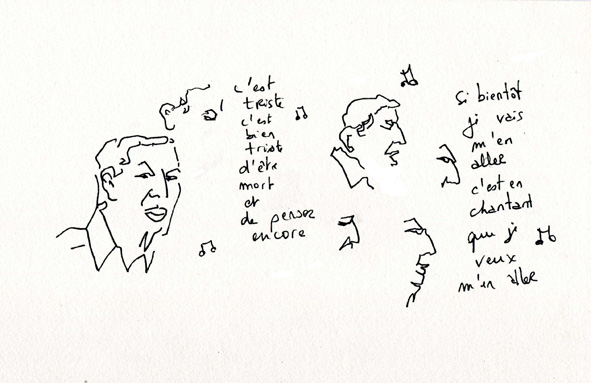 c'est
triste
c'est
bien
triste
d'être
mort
et
de penser
encore
Si bientôt
j vais
m'en
aller
c'est en
chantant
que j
veux
m'en aller